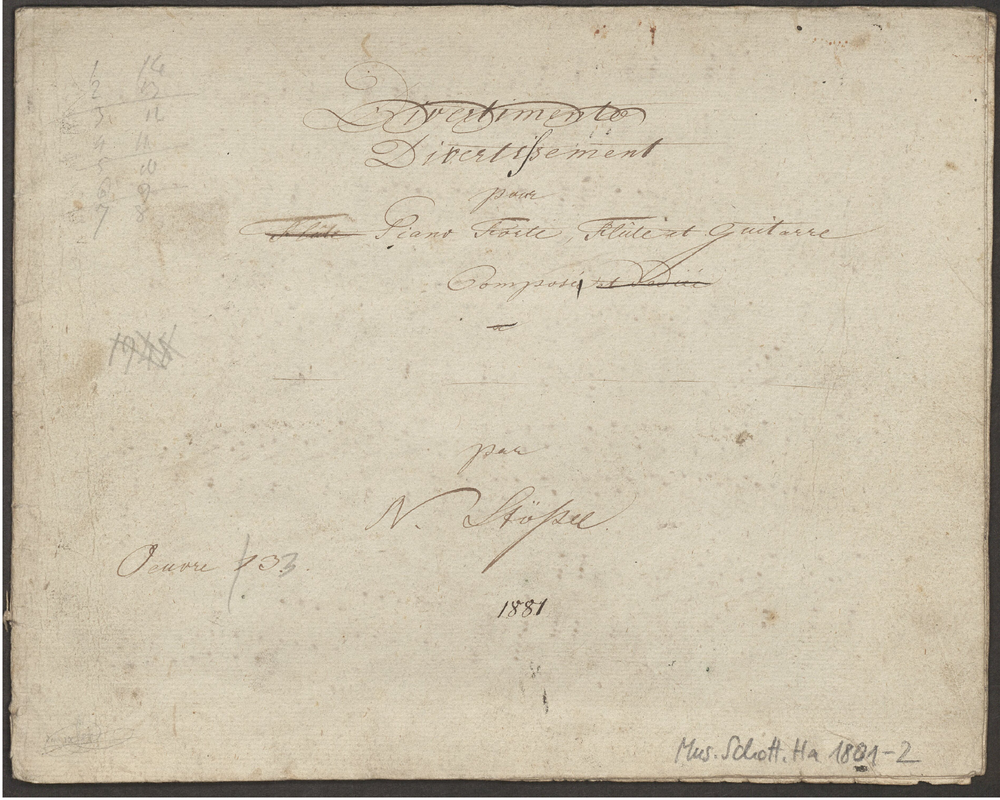 1 14
2 13
3 12
4 11
5 10
6 9
7 8
Divertimento
Divertissement
pour
Flûte Piano Forte, Flûte et Guitarre
Composé et Dedié
a
par
N. Stößel
Oeuvre 133.
1881
Mus. Schott. Ha 1881-2